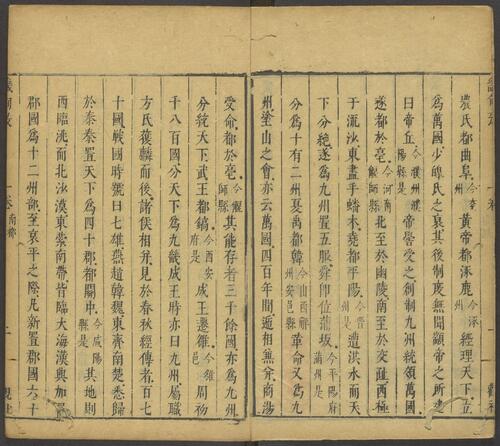 農氏都曲阜今兗州黃帝都涿鹿今涿州經理天下立
為萬國少皞氏之衰其後制度無聞顓帝之所建
曰帝丘今濮州濮陽縣是帝嚳受之創制九州統領萬國
遂都於亳今河南偃師縣北至於幽陵南至於交阯西極
于流沙東盡乎蟠木堯都平陽今晉州是遭洪水而天
下分絕遂為九州置五服舜卽位蒲坂今平陽府蒲州是
分為十有二州夏禹都韓今山西解州安邑縣革命又為九
州塗山之會亦云萬國四百年間遞相兼并商湯
受命都於亳今偃師縣其能存者三千餘國亦為九州
分統天下武王都鎬今西安府是成王遷雒今雒邑周初
千八百國分天下為九畿成王時亦曰九州屬職
方氏獲麟而後諸侯相并見於春秋經傳者百七
十國戰國時號曰七雄燕趙韓魏東齊南楚悉歸
於秦秦置天下為四十郡都關中今咸陽縣是其地則
西臨洮而北沙漠東縈南帶皆臨大海漢興加置
郡國為十二州部至哀平之際凡新置郡國六十